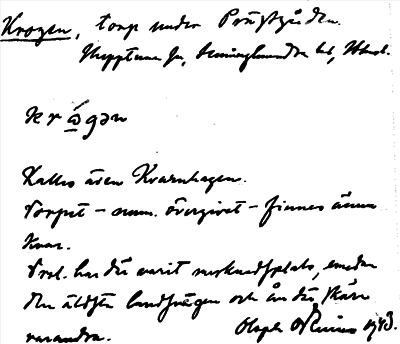 Krogen, torp under Prästgården.
Skepptuna sn, Seminghundra hd, Uppl.
krågan
Kallas även Kvarnhagen.
Torpet – num. övergivet – finnes ännu
kvar.
Trol. har där varit marknadsplats, emedan
den äldsta landsvägen och ån där skära
varandra.
Olof 1943.